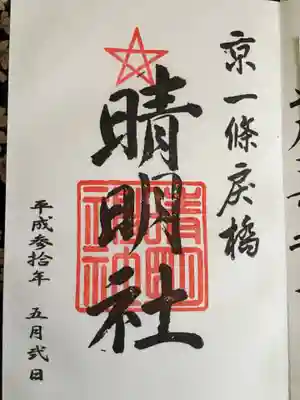 京一條戻橋
晴明社
晴明神社
平成参拾年 五月弐日